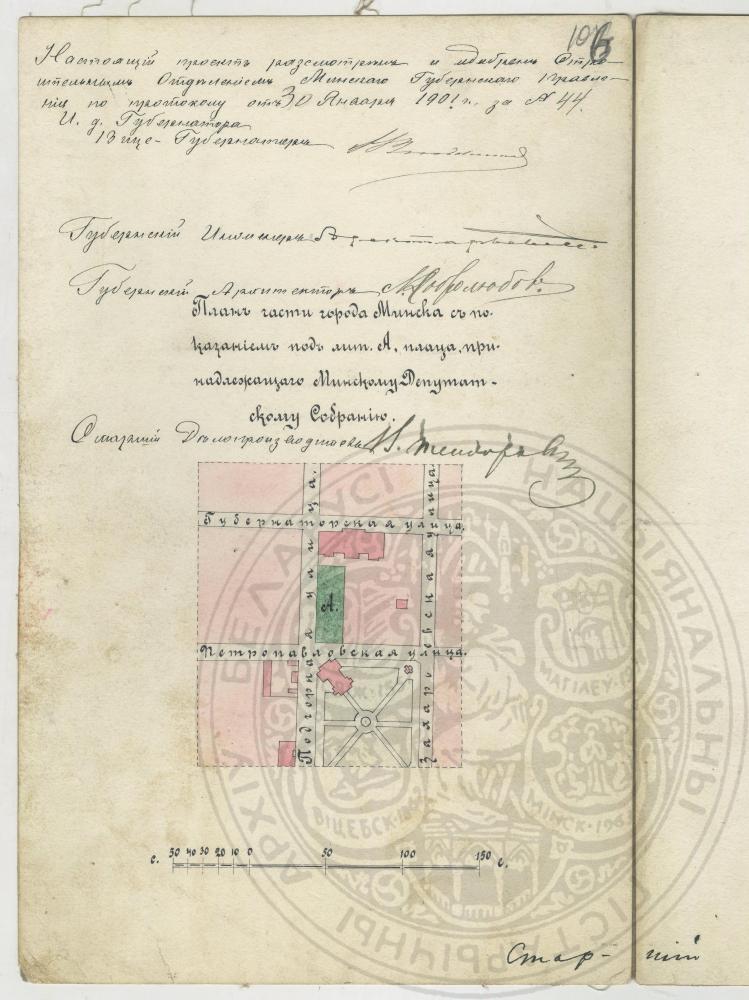 106
Настоящій проектъ разсмотренъ и одобренъ Строи-
тельнымъ Отдѣленіемъ Минскаго Губернскаго Правле-
нія по протоколу отъ 30 Января 1901 г. за № 44.
И. д. Губернатора
Вице-Губернаторъ
Губернскій Инженеръ
Губернскій Архитекторъ
Планъ части города Минска съ по-
казаніемъ подъ лит. А, плаца, при-
надлежащаго Минскому Депутат-
скому Собранію.
Старшій Дѣлопроизводитель
Губернаторская улица.
А.
Петропавловская улица.
Подгорная улица.
Захарьевская улица.
с. 50 40 30 20 10 0 50 100 150 с.
НАЦЫЯНАЛЬНЫ ГІСТАРЫЧНЫ АРХІЎ БЕЛАРУСІ
МАГІЛЕЎ
ВІЦЕБСК
МІНСК
Стар-ній